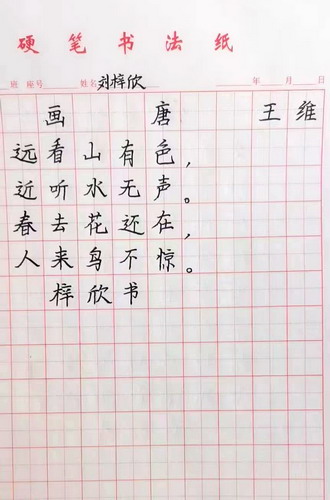 硬笔书法纸
班 座号 姓名 刘梓欣 年 月 日
画 唐 王维
远看山有色，
近听水无声。
春去花还在，
人来鸟不惊。
梓欣书